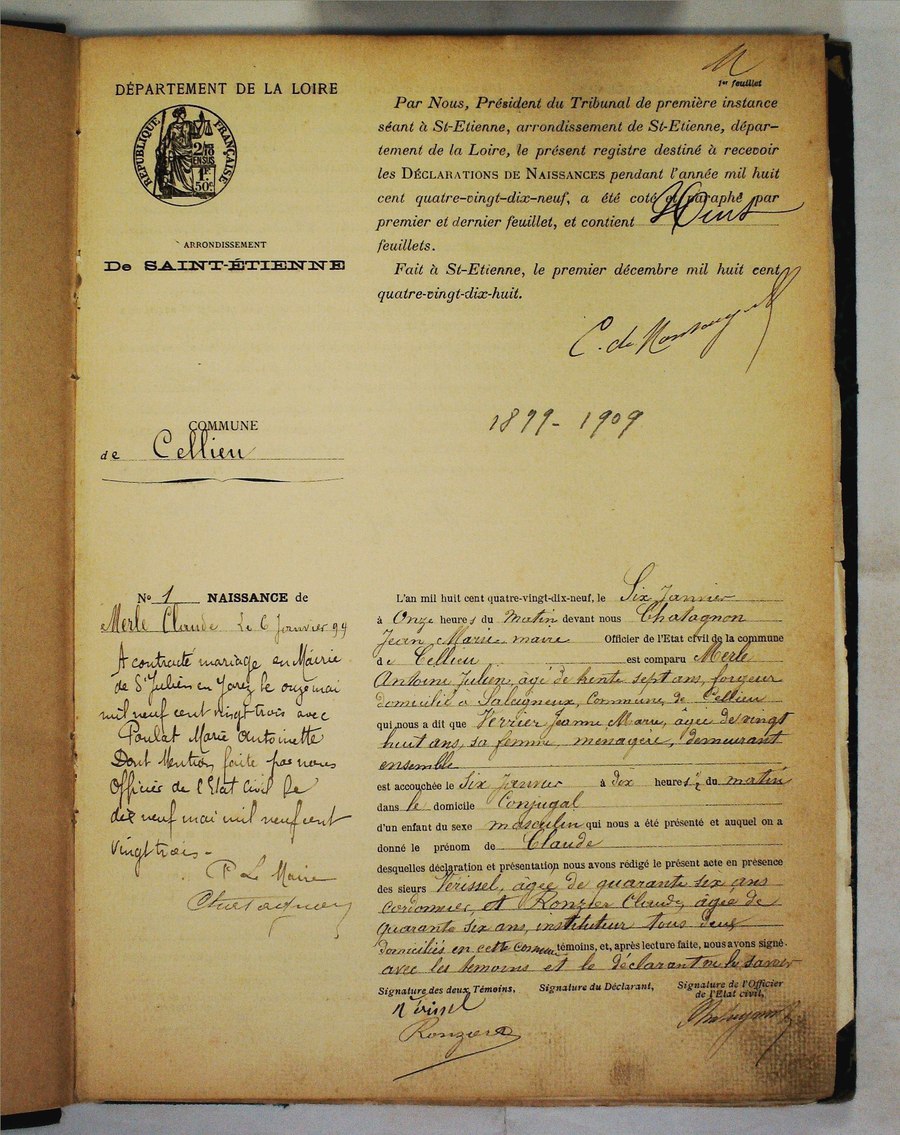 1er feuillet
DÉPARTEMENT DE LA LOIRE
RÉPUBLIQUE FRANÇAISE
2/10
EN SUS
1F
50c
ARRONDISSEMENT
DE SAINT-ÉTIENNE
COMMUNE
de Cellieu
Par Nous, Président du Tribunal de première instance
séant à St-Etienne, arrondissement de St-Etienne, dépar-
tement de la Loire, le présent registre destiné à recevoir
les DÉCLARATIONS DE NAISSANCES pendant l'année mil huit
cent quatre-vingt-dix-neuf, a été coté et paraphé par
premier et dernier feuillet, et contient
feuillets.
Fait à St-Etienne, le premier décembre mil huit cent
quatre-vingt-dix-huit.
1899-1909
No 1 NAISSANCE de
Merle Claude Le 6 Janvier 99
A contracté mariage en Mairie
de St Julien en Jarez le onze mai
mil neuf cent vingt trois avec
Poulat Marie Antoinette
Dont Mention faite par nous
Officier de l'Etat Civil le
dix neuf mai mil neuf cent
vingt trois -
P Le Maire
L'an mil huit cent quatre-vingt-dix-neuf, le Six Janvier
à Onze heures du Matin devant nous Chatagnon
Jean Marie maire Officier de l'Etat civil de la commune
de Cellieu est comparu Merle
Antoine Julien, âgé de trente sept ans, forgeur
domicilié à Salcigneux, Commune de Cellieu
qui nous a dit que Verrier Jeanne Marie, agée de vingt
huit ans, sa femme, ménagère, demeurant
ensemble
est accouchée le Six Janvier à dix heures ½ du matin
dans le domicile Conjugal
d'un enfant du sexe masculin qui nous a été présenté et auquel on a
donné le prénom de Claude
desquelles déclaration et présentation nous avons rédigé le présent acte en présence
des sieurs Vérissel, âgée de quarante six ans
Cordonnier, et Ronzier Claude, âgée de
quarante six ans, instituteur tous deux
domiciliés en cette Commune témoins, et, après lecture faite, nous avons signé
avec les temoins et le déclarant ne le savoir
Signature des deux Témoins, Signature du Déclarant, Signature de l'Officier
de l'Etat civil,
Vérissel
Ronzier